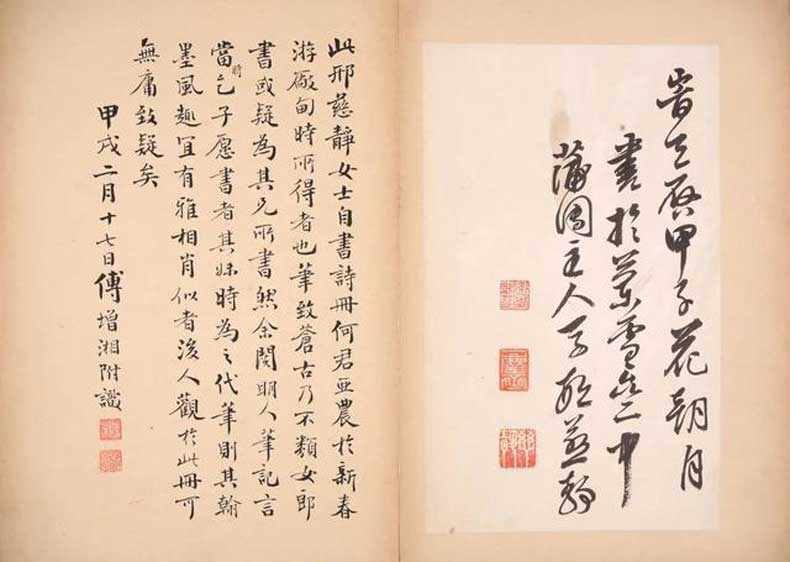 旹天啟甲子花朝月
書於蘭雪齋中
蒲團主人馬邢慈靜
此邢慈靜女士自書詩冊何君亞農於新春
游厰甸時所得者也筆致蒼古乃不類女郎
書或疑為其兄所書然余閱明人筆記言
當時乞子愿書者其妹時為之代筆則其翰
墨風趣宜有雅相肖似者後人觀於此冊可
無庸致疑矣
甲戌二月十七日傅增湘附識